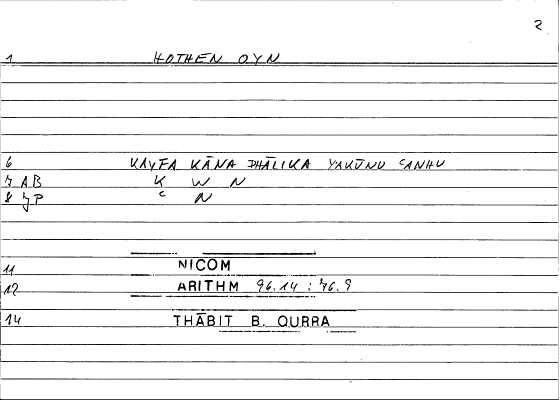 2
1 HOTHEN OYN
6 KAYFA KĀNA DHĀLIKA YAKŪNU ʿANHU
7 AB K W N
8 JP ʿ N
11 NICOM
12 ARITHM 96.14 : 76.9
14 THĀBIT B. QURRA